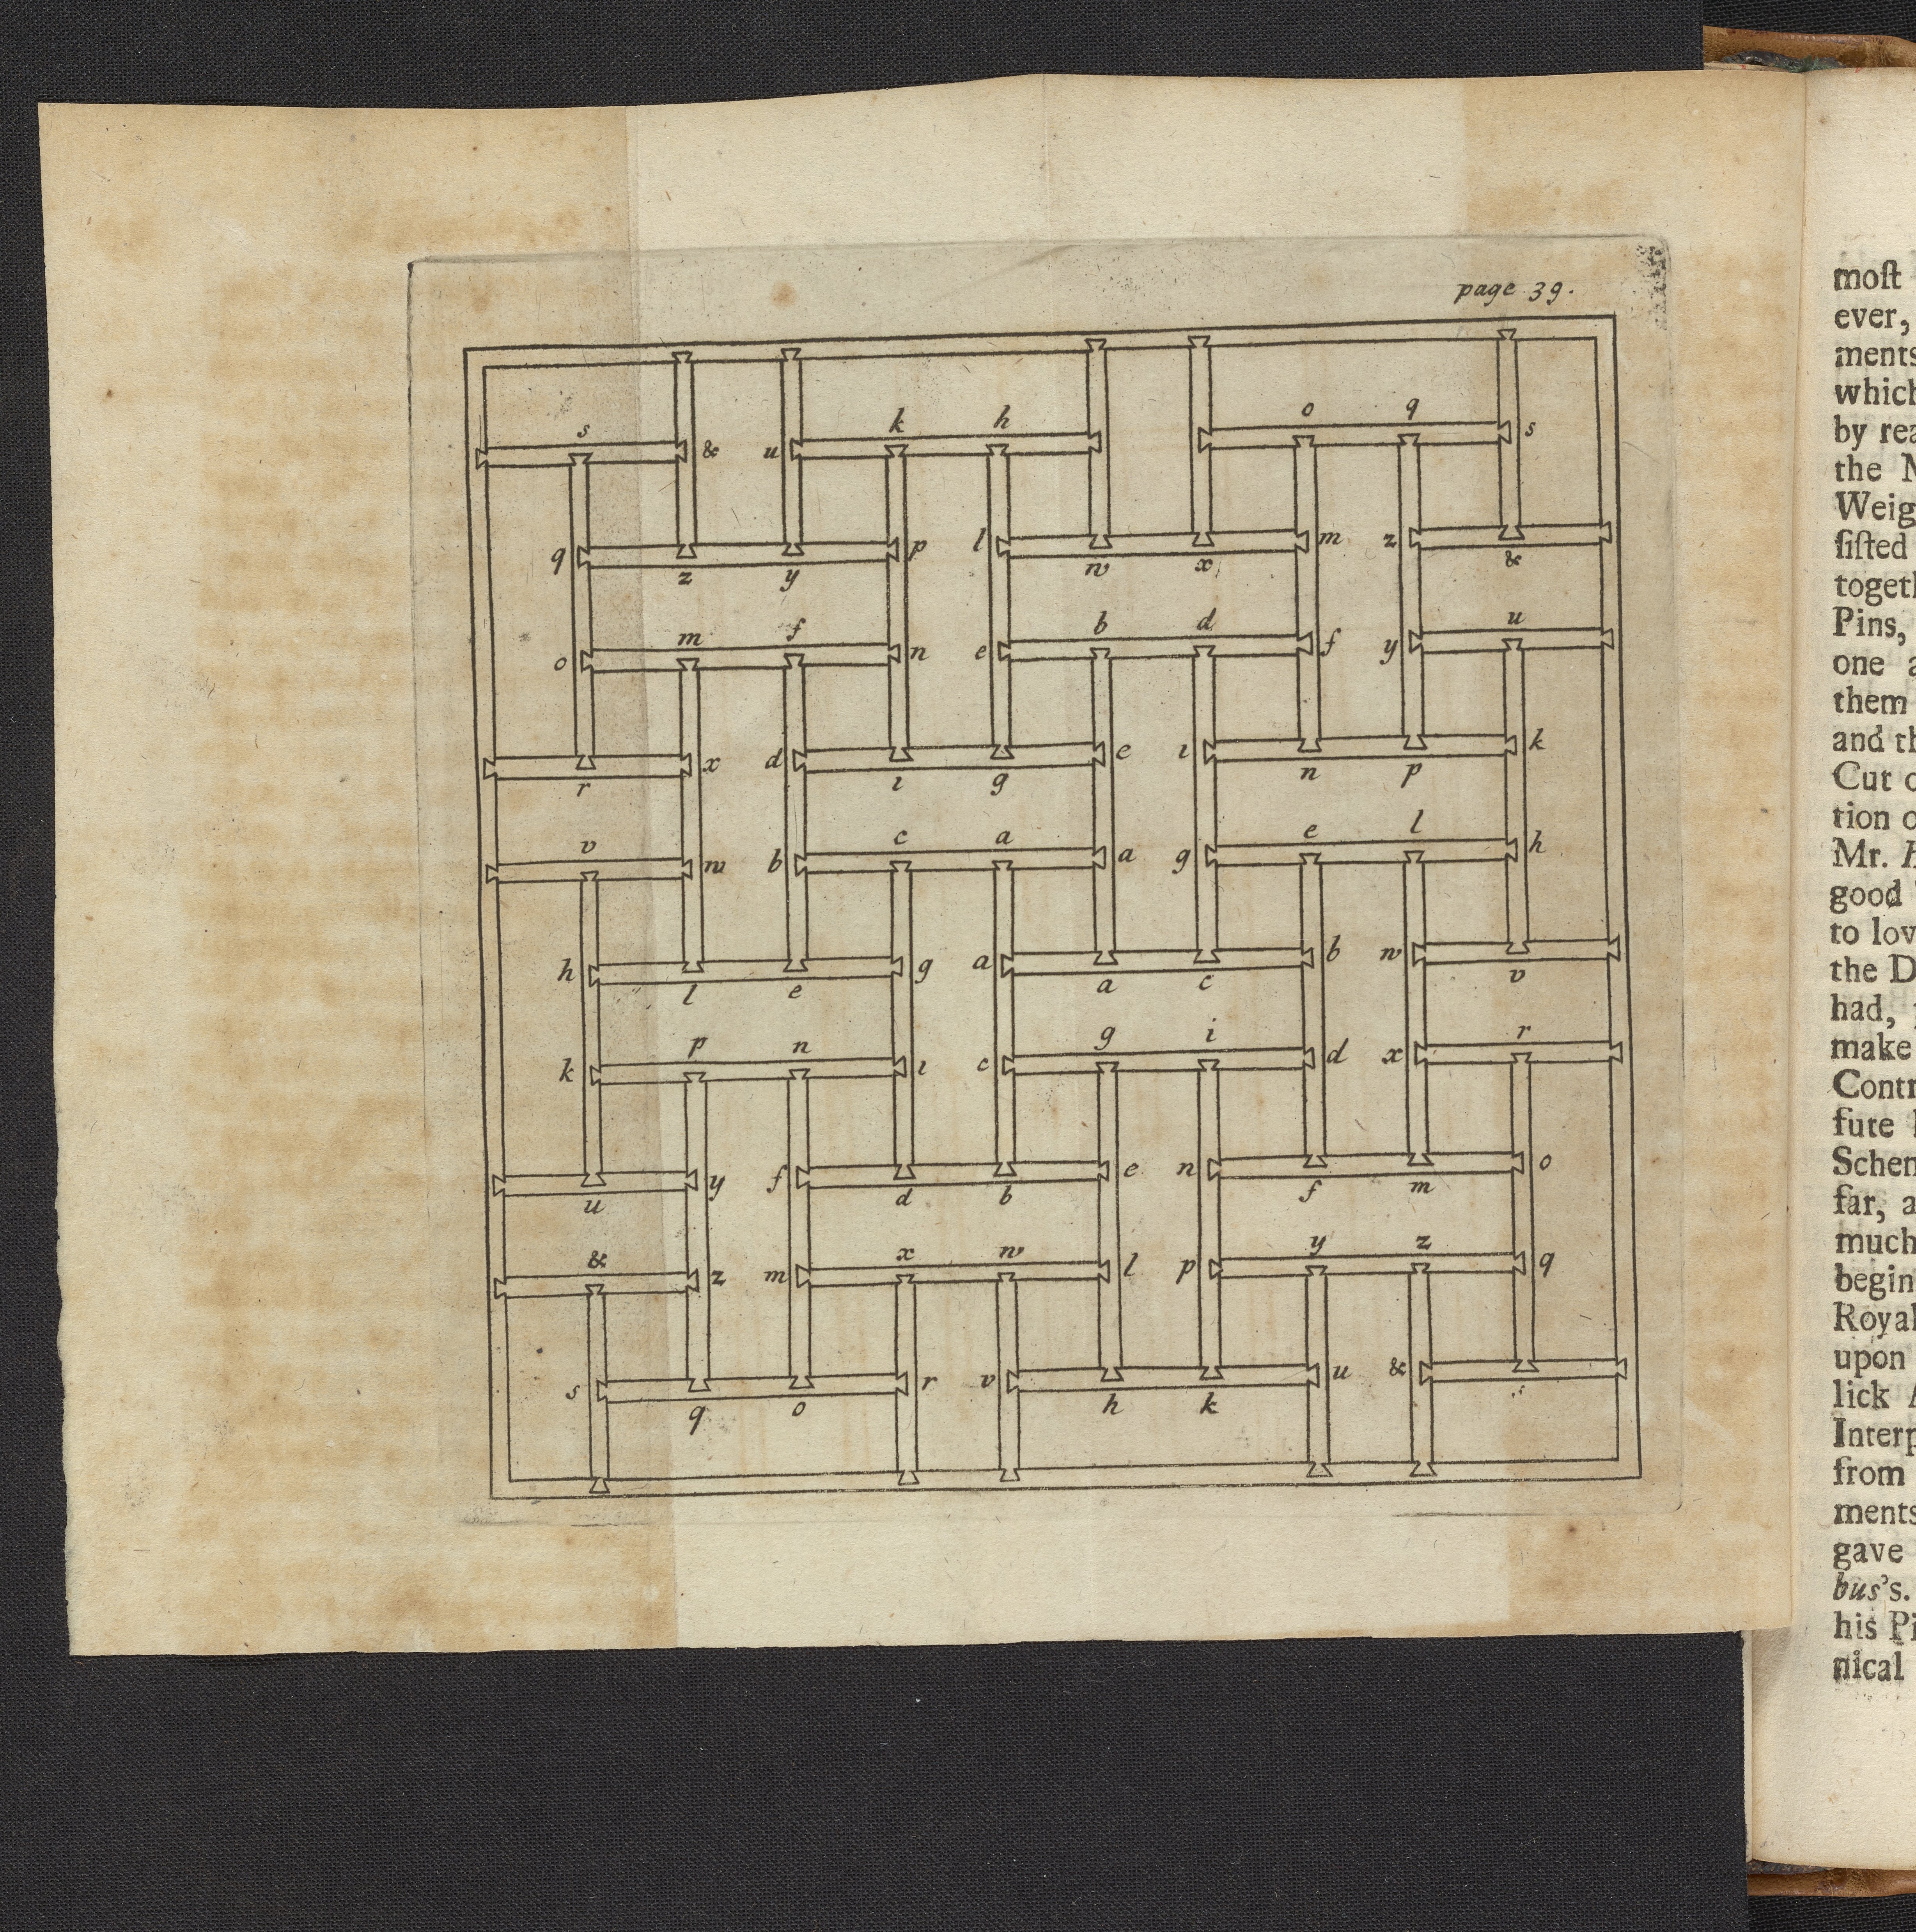 page 39.
o q
s k h
& u s
q p l m z
z y w x &
m f b d u
o n e f y
x d e ı k
r ı g n p
v c a e l
w b a g h
h g a b w
l e a c v
p n g i r
k ı c d x
y f e n o
u d b f m
& x w y z
z m l p q
s r v u &
q o h k
most
ever,
ments
which
by rea
the M
Weig
sisted
togeth
Pins,
one a
them
and th
Cut o
tion o
Mr. H
good
to lov
the D
had,
make
Contr
fute
Schem
far, a
much
begin
Royal
upon
lick A
Interp
from
ments
gave
bus's.
his Pi
nical